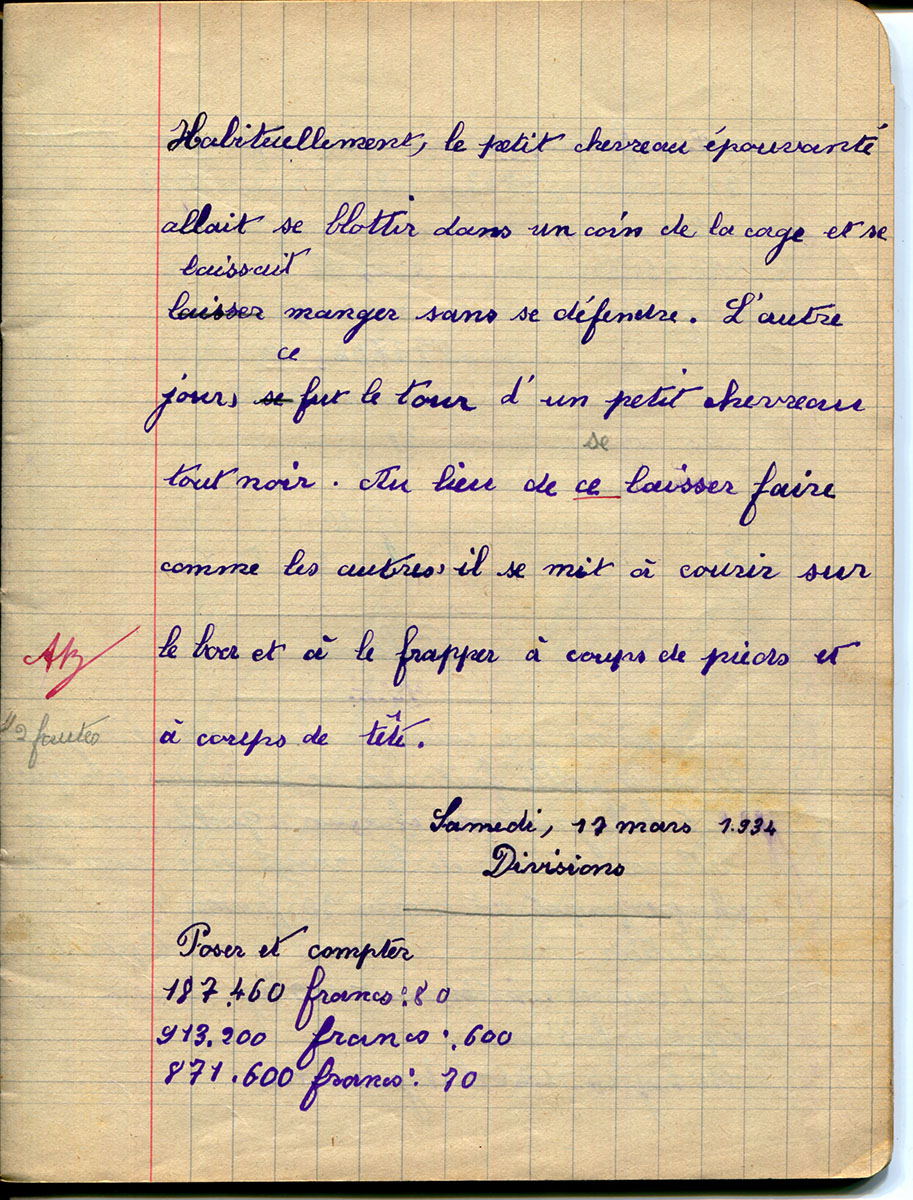 Habituellement, le petit chevreau épouvanté
allait se blottir dans un coin de la cage et se
laissait
laisser manger sans se défendre. L'autre
ce
jour, se fut le tour d'un petit chevreau
se
tout noir. Au lieu de ce laisser faire
comme les autres, il se mit à courir sur
le boa et à le frapper à coups de pieds et
à coups de tête.
2 fautes
Samedi, 17 mars 1.934
Divisions
Poser et compter
187.460 francs : 80
913.200 francs : 600
871.600 francs : 70